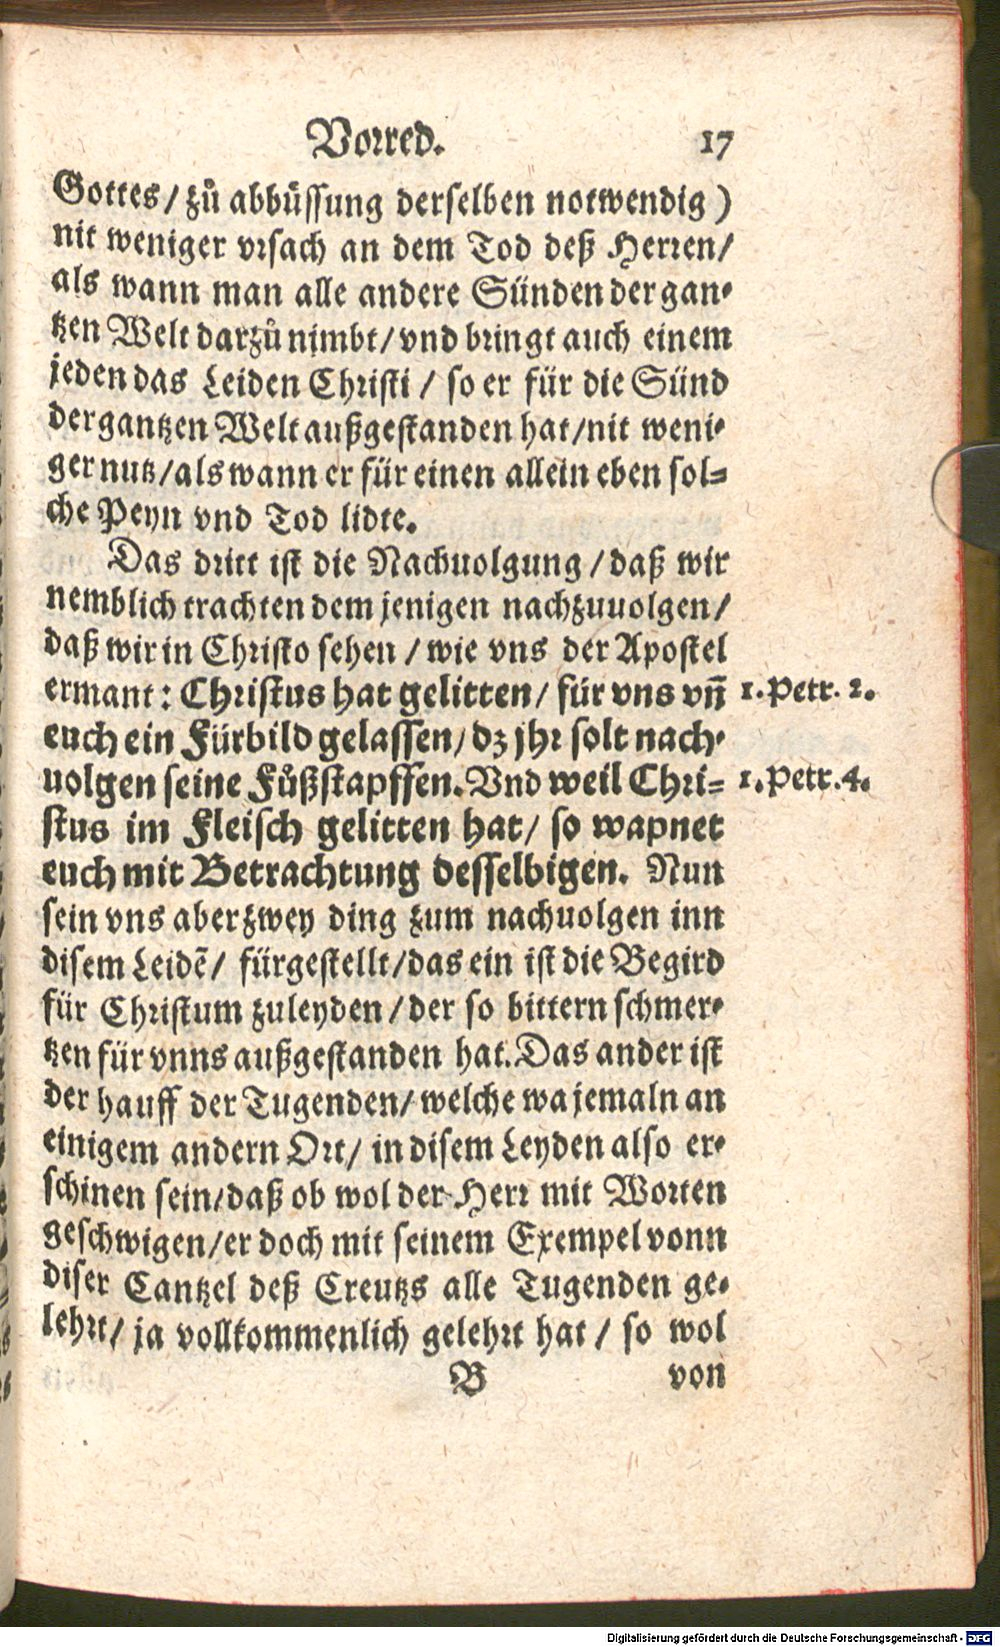 Vorred. 17
Gottes/ zů abbüssung derselben notwendig)
nit weniger vrsach an dem Tod deß Herren/
als wann man alle andere Sünden der gan-
tzen Welt darzů nimbt/ vnd bringt auch einem
jeden das Leiden Christi / so er für die Sünd
der gantzen Welt außgestanden hat/nit weni-
ger nutz/als wann er für einen allein eben sol-
che Peyn vnd Tod lidte.
Das dritt ist die Nachuolgung /daß wir
nemblich trachten dem jenigen nachzuuolgen/
daß wir in Christo sehen / wie vns der Apostel
ermant: Christus hat gelitten/ für vns vñ 1. Petr. 2.
euch ein Fürbild gelassen/ dz jhr solt nach-
uolgen seine Fůßstapffen. Vnd weil Chri- 1. Petr. 4.
stus im Fleisch gelitten hat/ so wapnet
euch mit Betrachtung desselbigen. Nun
sein vns aber zwey ding zum nachuolgen inn
disem Leidẽ/ fürgestellt/das ein ist die Begird
für Christum zuleyden /der so bittern schmer-
tzen für vnns außgestanden hat. Das ander ist
der hauff der Tugenden/ welche wa jemaln an
einigem andern Ort/ in disem Leyden also er-
schinen sein/daß ob wol der Herr mit Worten
geschwigen/er doch mit seinem Exempel vonn
diser Cantzel deß Creutzs alle Tugenden ge-
lehrt/ ja vollkommenlich gelehrt hat / so wol
B von
Digitalisierung gefördert durch die Deutsche Forschungsgemeinschaft - DFG